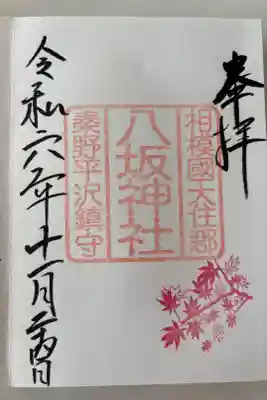 奉拝
相模國大住郷
八坂神社
秦野平沢鎮守
令和六年十一月日